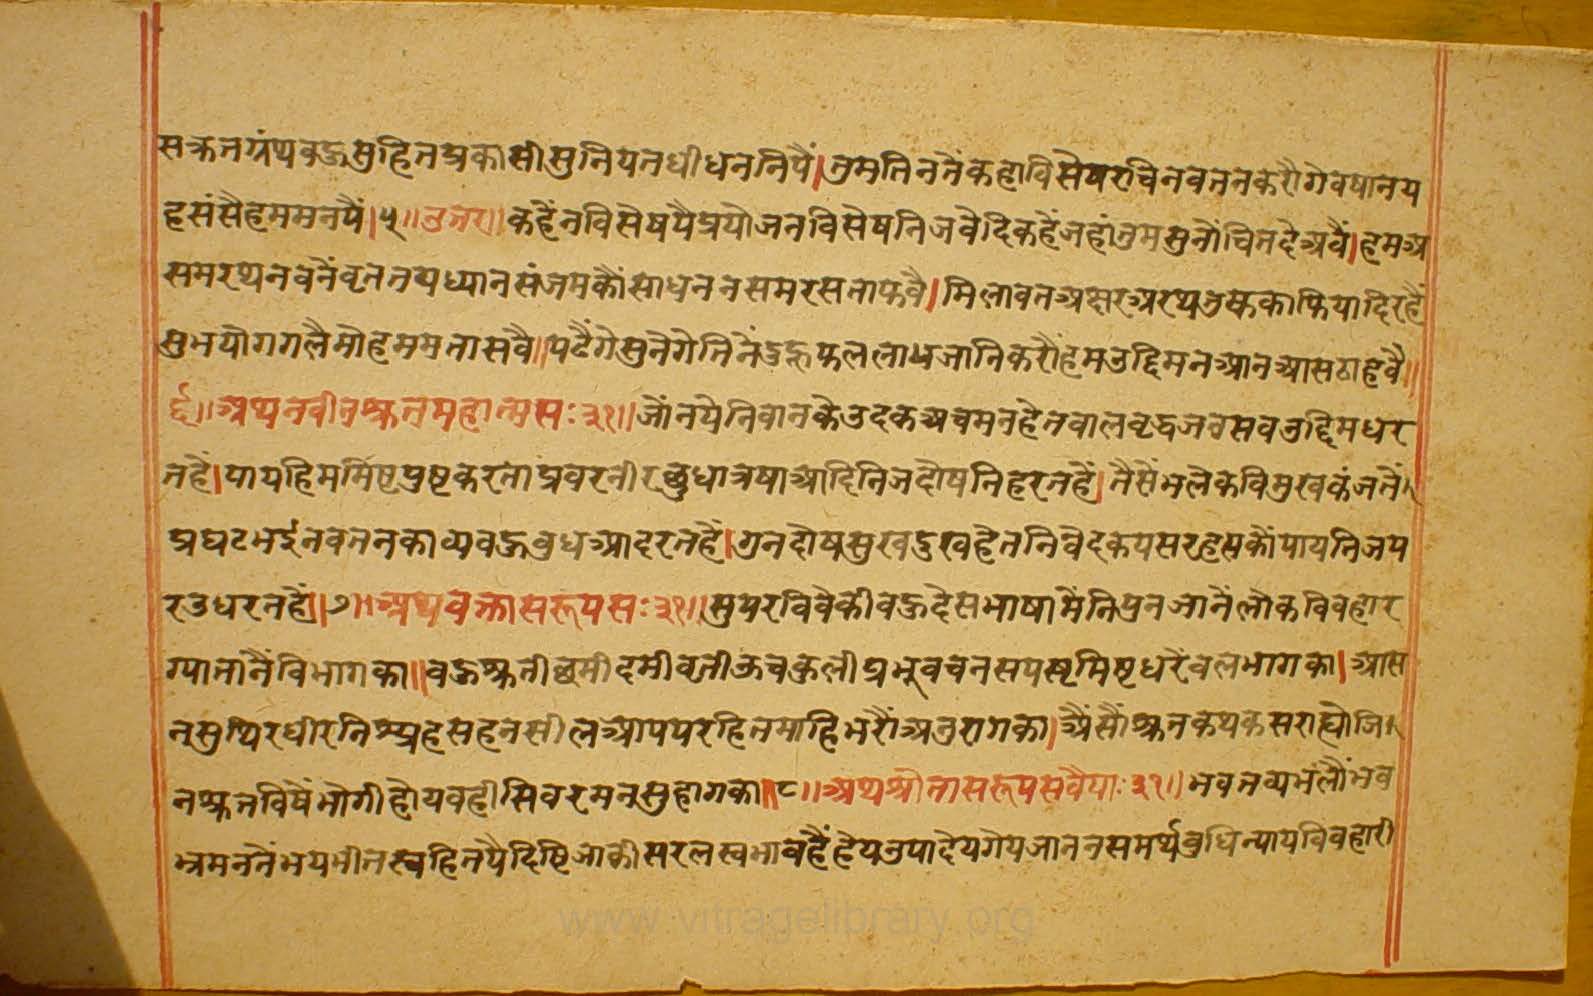 सक्तनग्रंथबऊसुहितप्रकासीसुनियतधीधननिपैं।तुमतिनतैंकहाविसेषरचितवतनकरौगेवषानय
हसंसैहममनपैं।५॥उत्तर॥कहैंनविसेषपैप्रयोजनविसेषनिजवेदिकहैंजहांतुमसुनोंचितदेअवैं।हमअ
समरथनवनैंवृतनपध्यानसंजमकौंसाधननसमरसनाफवै।मिलावतअक्षरअरथतुछककाफियादिरहैं
सुभयोगगलैमोहममतासवै॥पढैंगेसुनेगेतिनैंदुहूफललाधजानिकरौंहमउद्दिमनआनआसठाहवै॥
६॥अथनवीनश्रुतमहात्मसः३१॥जोंनयेनिवानकेउदकअचमनहेतवालवृद्धजनसवउद्दिमधर
तहैं।पायहिममिष्टपुष्टकरताप्रवरनीरछुधात्रषाआदिनिजदोषनिहरतहैं।तैसेंभलेकविमुखकंजतैं
प्रघटभईनवतनकाव्यवऊवुधआदरतहैं।गुनदोषसुखदुखहेतनिवेदकपसरहसकौंपायनिजप
रउधरतहैं॥७॥अथवक्तासरूपसः३१॥सुपरविवेकीवऊदेसभाषामैंनिपुनजानैंलोकविवहार
ग्यातानैंविभागका॥वऊश्रुतीछमीदमीवृतीऊचकुलीप्रभूवचनसपस्पृमिष्टधरैंवलभागका।आस
नसुथिरधीरनिश्प्रहसहनसीलआपपरहितमाहिभरौंअनुरागका।अैंसौंश्रुतकथकसराह्योजि
नश्रुतविषैंभोगीहोयवहीसिवरमनसुहागका॥८॥अथश्रोतासरूपसवैयाः३१॥भवतव्यभलौंभव
भ्रमनतैंभयभीतस्वहितपैदिष्टिजाकीसरलस्वभावहैंहेयउपादेयगेयजाननसमर्थवुधिन्यायविवहारी
www.vitragelibrary.org